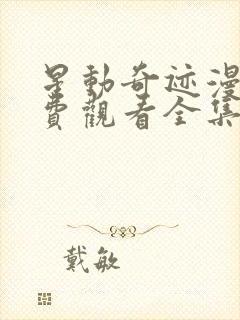 星動奇迹漫
費觀看全集
戴敏